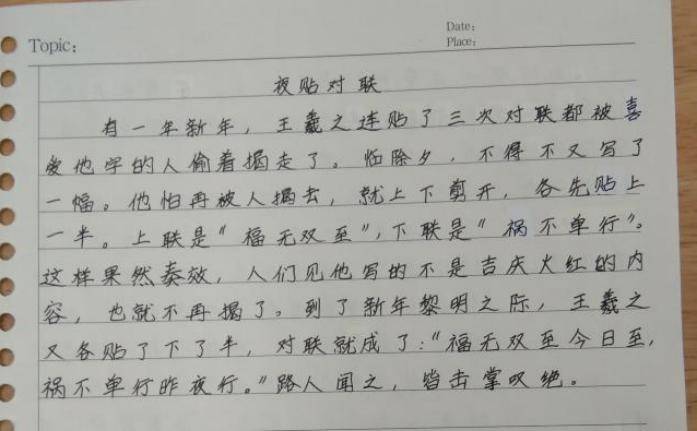 Topic:
Date:
Place:
夜贴对联
有一年新年，王羲之连贴了三次对联都被喜
爱他字的人偷着揭走了。临除夕，不得不又写了
一幅。他怕再被人揭去，就上下剪开，各先贴上
一半。上联是“福无双至”，下联是“祸不单行”。
这样果然奏效，人们见他写的不是吉庆火红的内
容，也就不再揭了。到了新年黎明之际，王羲之
又各贴了下了半，对联就成了：“福无双至今日至，
祸不单行昨夜行。”路人闻之，皆击掌叹绝。